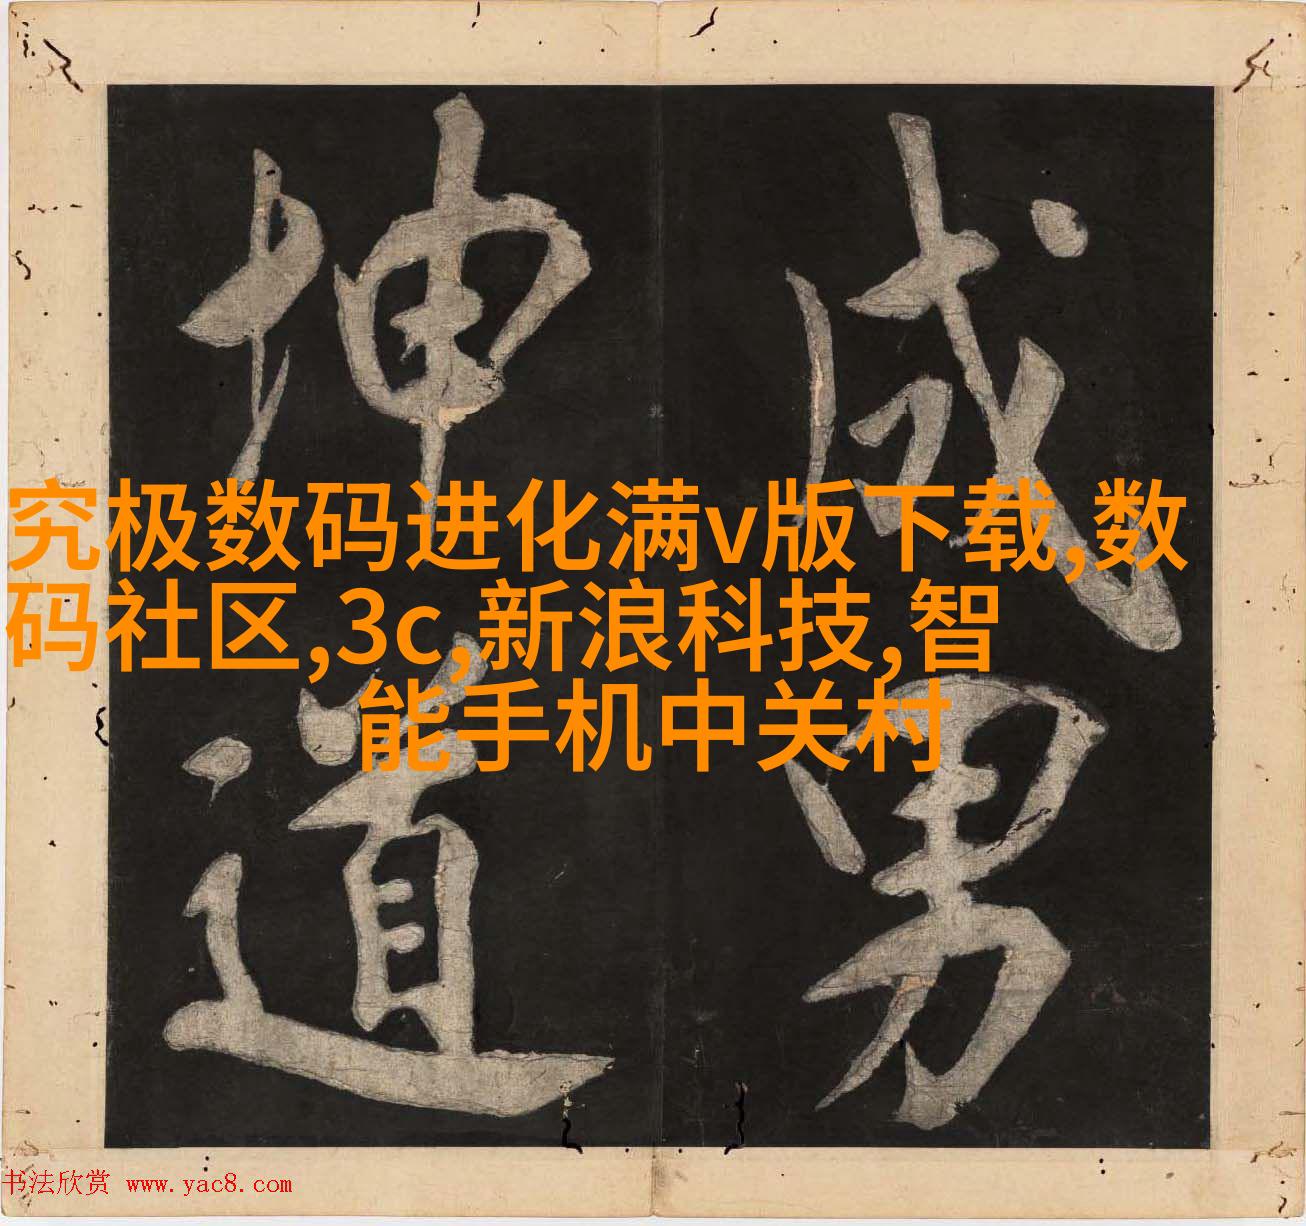 成男
坤道
究极数码进化满v版下载,数
码社区,3c,新浪科技,智
能手机中关村
书法欣赏 www.yac8.com